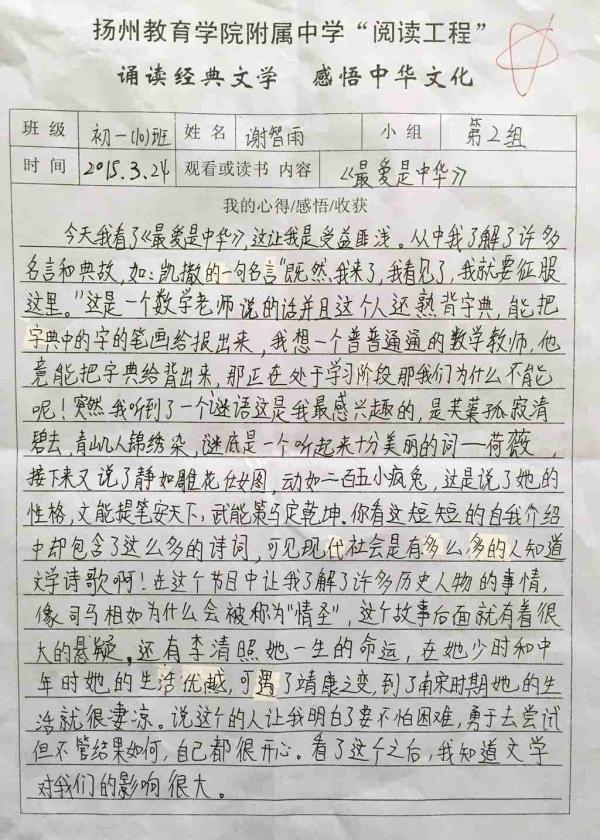 扬州教育学院附属中学“阅读工程”
诵读经典文学 感悟中华文化
班级 初一(10)班 姓名 谢智雨 小组 第2组
时间 2015.3.24 观看或读书 内容 《最爱是中华》
我的心得/感悟/收获
今天我看了《最爱是中华》,这让我是受益匪浅。从中我了解了许多
名言和典故,如:凯撒的一句名言“既然我来了,我看见了,我就要征服
这里。”这是一个数学老师说的话并且这个人还熟背字典,能把
字典中的字的笔画给报出来,我想一个普普通通的数学教师,他
竟能把字典给背出来,那正在处于学习阶段那我们为什么不能
呢!突然我听到了一个谜语这是我最感兴趣的,是芙蓉孤寂清
碧去,青山几人锦绣染,谜底是一个听起来十分美丽的词——荷薇,
接下来又说了静如雕花仕女图,动如二百五小疯兔,这是说了她的
性格,文能提笔安天下,武能策马定乾坤.你看这短短的自我介绍
中却包含了这么多的诗词,可见现代社会是有多么多的人知道
文学诗歌啊!在这个节目中让我了解了许多历史人物的事情,
像司马相如为什么会被称为“情圣”,这个故事后面就有着很
大的悬疑,还有李清照她一生的命运,在她少时和中
年时她的生活优越,可遇了靖康之变,到了南宋时期她的生
活就很凄凉。说这个的人让我明白了要不怕困难,勇于去尝试
但不管结果如何,自己都很开心。看了这个之后,我知道文学
对我们的影响很大。